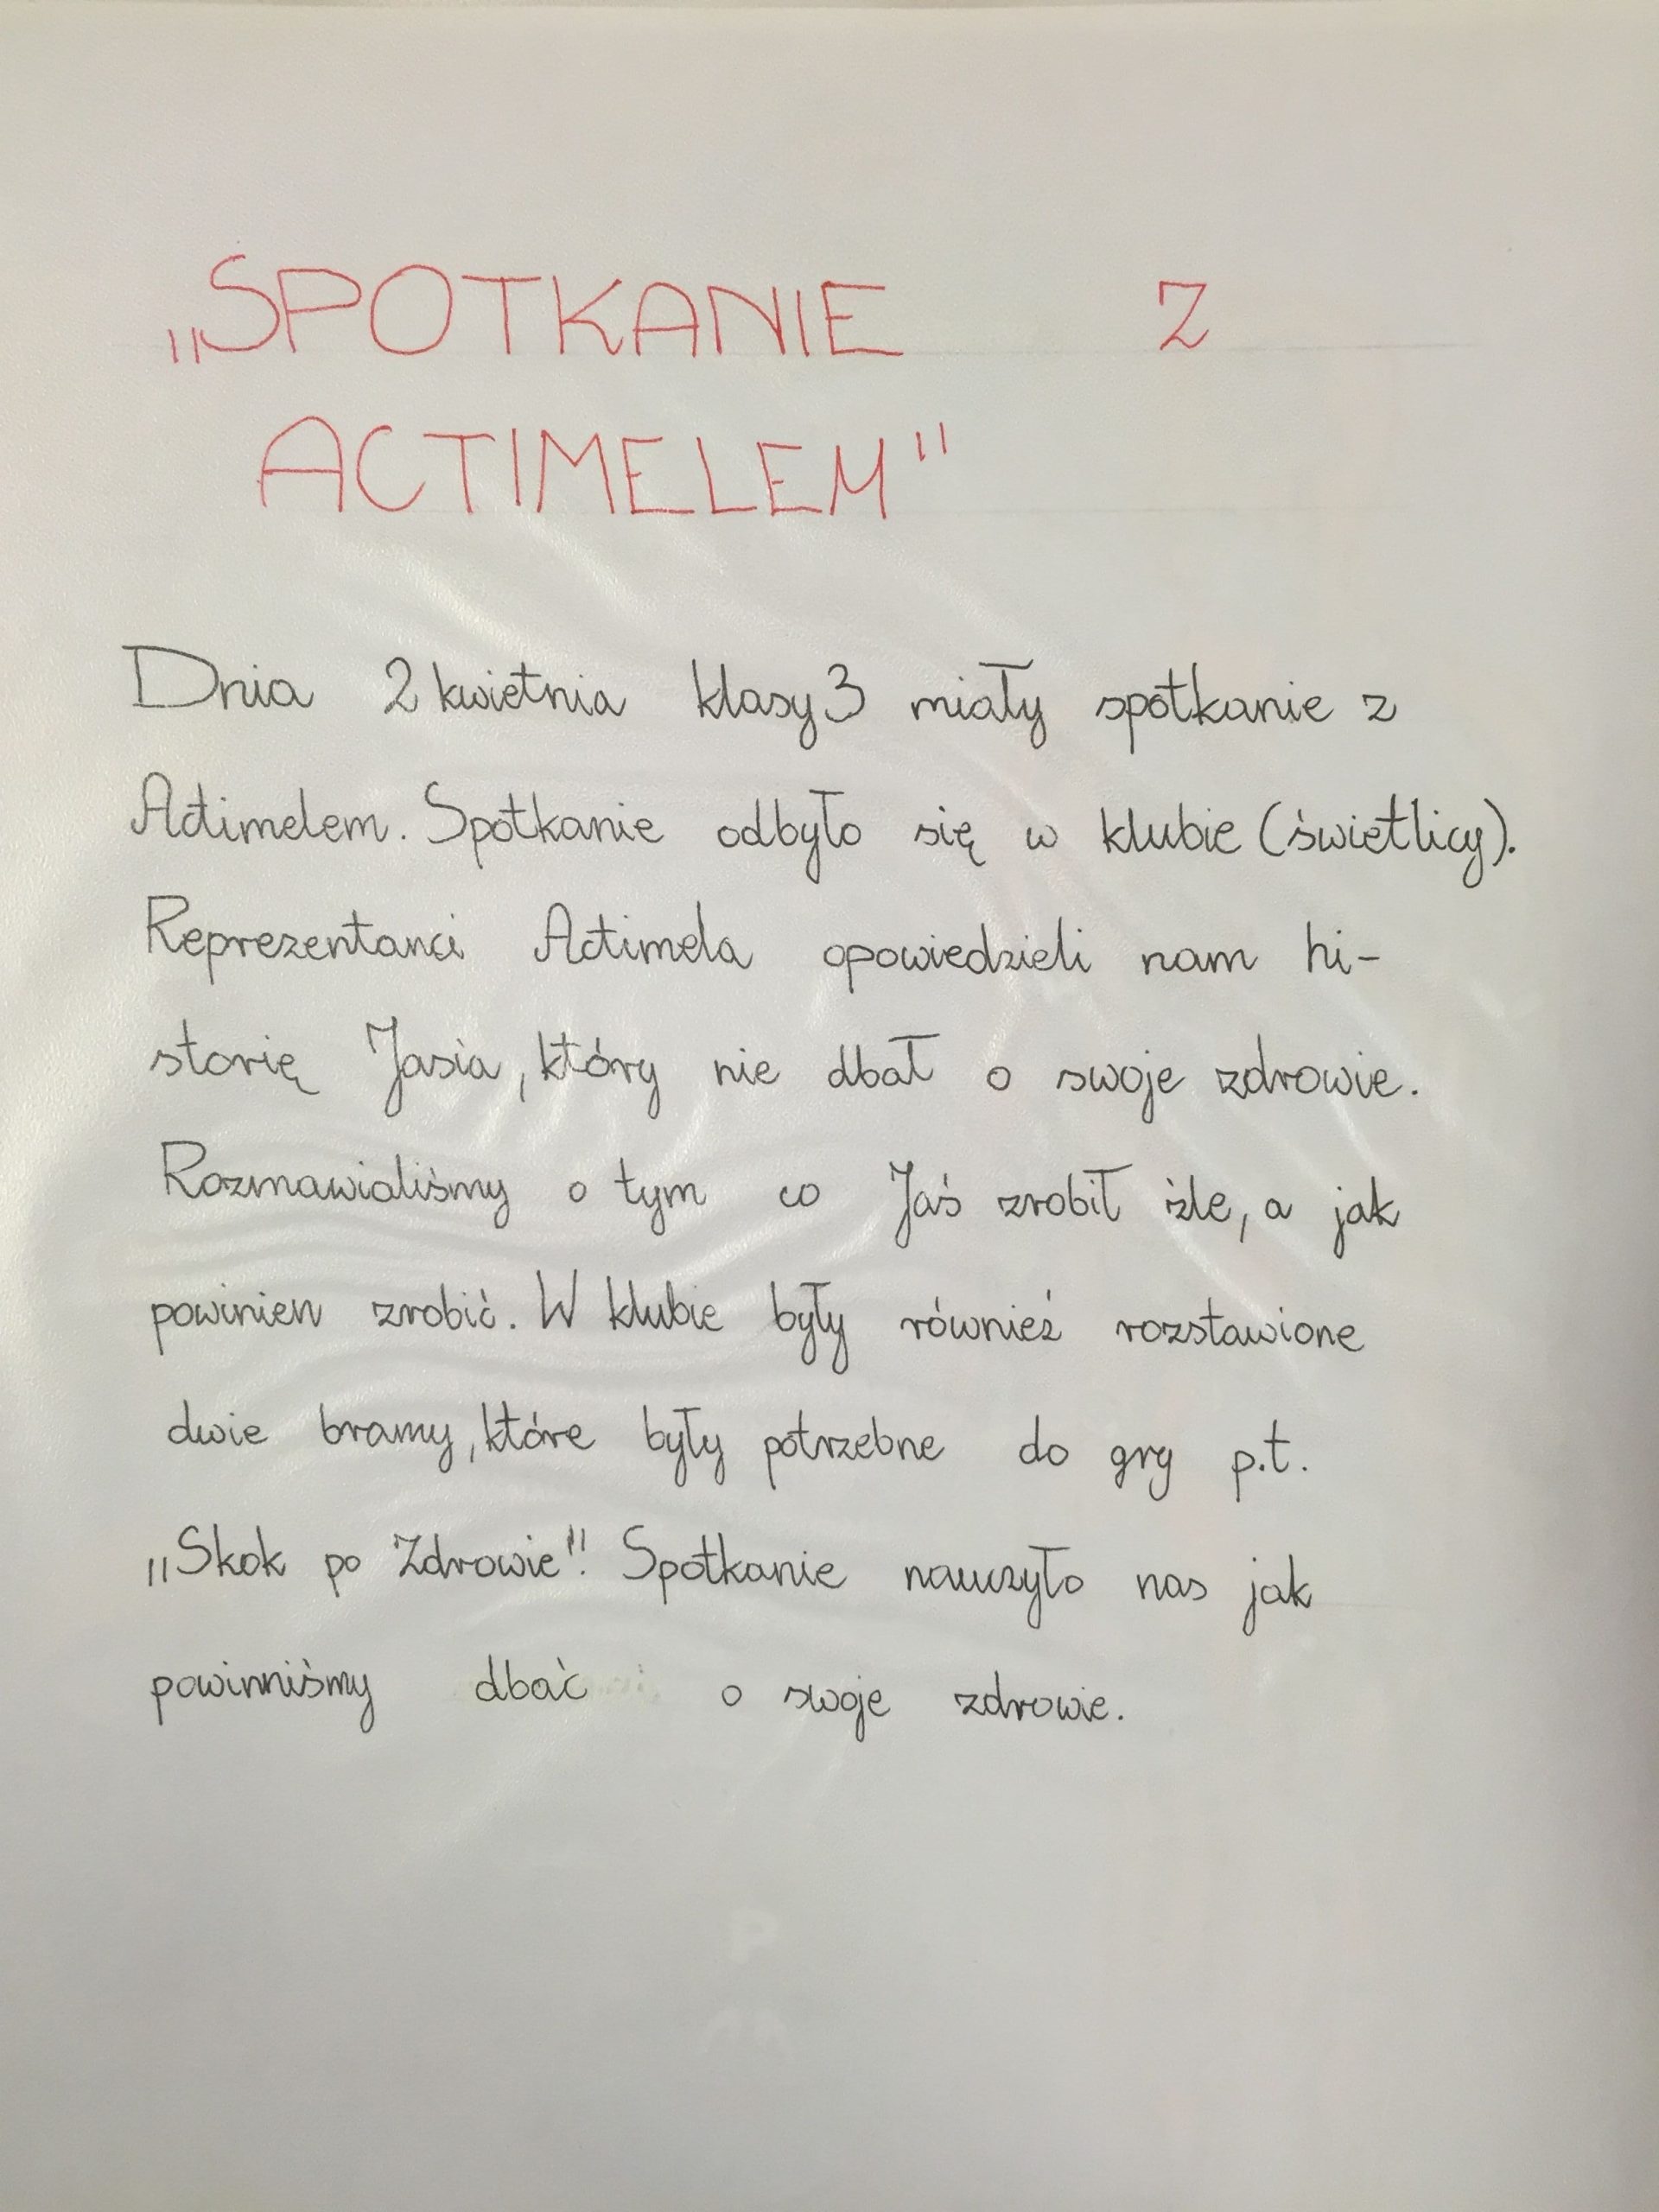 „SPOTKANIE Z
ACTIMELEM"
Dnia 2 kwietnia klasy 3 miały spotkanie z
Actimelem. Spotkanie odbyło się w klubie (świetlicy).
Reprezentanci Actimela opowiedzieli nam hi-
storię Jasia, który nie dbał o swoje zdrowie.
Rozmawialiśmy o tym co Jaś zrobił źle, a jak
powinien zrobić. W klubie były również rozstawione
dwie bramy, które były potrzebne do gry p.t.
„Skok po Zdrowie". Spotkanie nauczyło nas jak
powinniśmy dbać o swoje zdrowie.